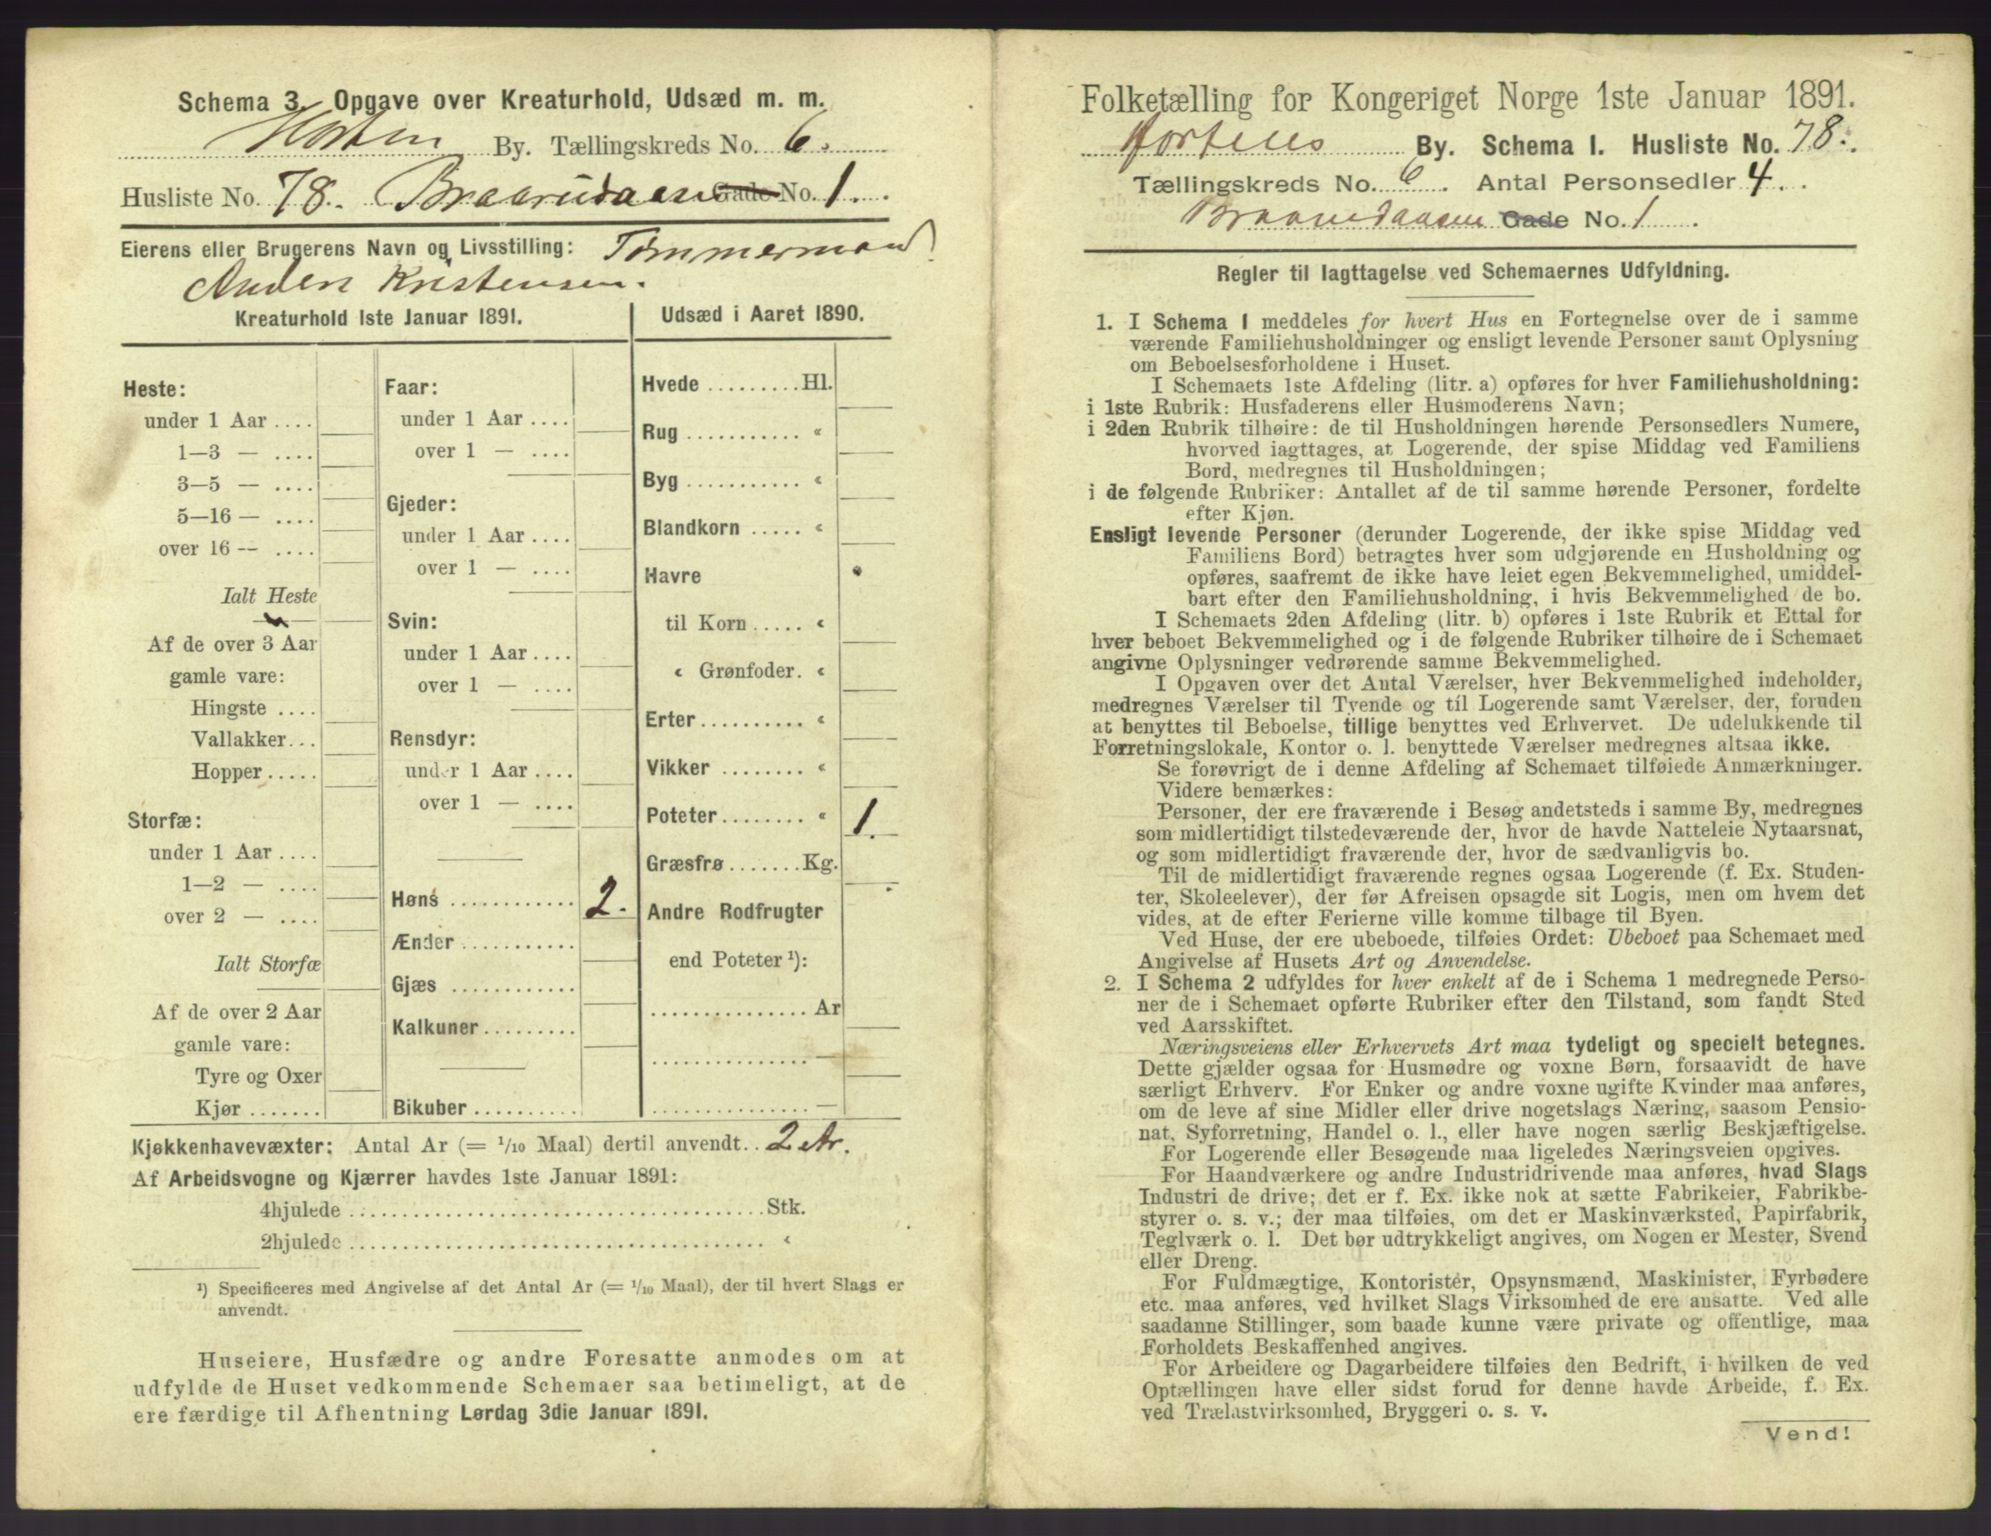 Schema 3. Opgave over Kreaturhold, Udsæd m. m.
Horten By. Tællingskreds No. 6.
Husliste No. 78. Braarudaasen Gade No. 1.
Eierens eller Brugerens Navn og Livsstilling: Tømmermand
Anders Kristensen.
Kreaturhold 1ste Januar 1891.
Heste:
under 1 Aar ....
1—3 — ....
3—5 — ....
5—16 — ....
over 16 — ....
Ialt Heste
Af de over 3 Aar
gamle vare:
Hingste ....
Vallakker...
Hopper.....
Storfæ:
under 1 Aar ....
1—2 — ....
over 2 — ....
Ialt Storfæ
Af de over 2 Aar
gamle vare:
Tyre og Oxer
Kjør .......
Faar:
under 1 Aar ....
over 1 — ....
Gjeder:
under 1 Aar ....
over 1 — ....
Svin:
under 1 Aar ....
over 1 — ....
Rensdyr:
under 1 Aar ....
over 1 — ....
Høns ............ 2.
Ænder ...........
Gjæs ............
Kalkuner.........
Bikuber ..........
Udsæd i Aaret 1890.
Hvede .........Hl.
Rug ........... "
Byg ........... "
Blandkorn ..... "
Havre
til Korn ..... "
" Grønfoder. "
Erter.......... "
Vikker ........ "
Poteter........ " 1.
Græsfrø .......Kg.
Andre Rodfrugter
end Poteter ¹):
............... Ar
............... —
............... —
Kjøkkenhavevæxter: Antal Ar (= 1/10 Maal) dertil anvendt.. 2 Ar.
Af Arbeidsvogne og Kjærrer havdes 1ste Januar 1891:
4hjulede ....................................Stk.
2hjulede .................................... "
¹) Specificeres med Angivelse af det Antal Ar (= 1/10 Maal), der til hvert Slags er
anvendt.
Huseiere, Husfædre og andre Foresatte anmodes om at
udfylde de Huset vedkommende Schemaer saa betimeligt, at de
ere færdige til Afhentning Lørdag 3die Januar 1891.
Folketælling for Kongeriget Norge 1ste Januar 1891.
Hortens By. Schema I. Husliste No. 78.
Tællingskreds No. 6. Antal Personsedler 4.
Braarudaasen Gade No. 1.
Regler til Iagttagelse ved Schemaernes Udfyldning.
1. I Schema 1 meddeles for hvert Hus en Fortegnelse over de i samme
værende Familiehusholdninger og ensligt levende Personer samt Oplysning
om Beboelsesforholdene i Huset.
I Schemaets 1ste Afdeling (litr. a) opføres for hver Familiehusholdning:
i 1ste Rubrik: Husfaderens eller Husmoderens Navn;
i 2den Rubrik tilhøire: de til Husholdningen hørende Personsedlers Numere,
hvorved iagttages, at Logerende, der spise Middag ved Familiens
Bord, medregnes til Husholdningen;
i de følgende Rubriker: Antallet af de til samme hørende Personer, fordelte
efter Kjøn.
Ensligt levende Personer (derunder Logerende, der ikke spise Middag ved
Familiens Bord) betragtes hver som udgjørende en Husholdning og
opføres, saafremt de ikke have leiet egen Bekvemmelighed, umiddel-
bart efter den Familiehusholdning, i hvis Bekvemmelighed de bo.
I Schemaets 2den Afdeling (litr. b) opføres i 1ste Rubrik et Ettal for
hver beboet Bekvemmelighed og i de følgende Rubriker tilhøire de i Schemaet
angivne Oplysninger vedrørende samme Bekvemmelighed.
I Opgaven over det Antal Værelser, hver Bekvemmelighed indeholder,
medregnes Værelser til Tyende og til Logerende samt Værelser, der, foruden
at benyttes til Beboelse, tillige benyttes ved Erhvervet. De udelukkende til
Forretningslokale, Kontor o. l. benyttede Værelser medregnes altsaa ikke.
Se forøvrigt de i denne Afdeling af Schemaet tilføiede Anmærkninger.
Videre bemærkes:
Personer, der ere fraværende i Besøg andetsteds i samme By, medregnes
som midlertidigt tilstedeværende der, hvor de havde Natteleie Nytaarsnat,
og som midlertidigt fraværende der, hvor de sædvanligvis bo.
Til de midlertidigt fraværende regnes ogsaa Logerende (f. Ex. Studen-
ter, Skoleelever), der før Afreisen opsagde sit Logis, men om hvem det
vides, at de efter Ferierne ville komme tilbage til Byen.
Ved Huse, der ere ubeboede, tilføies Ordet: Ubeboet paa Schemaet med
Angivelse af Husets Art og Anvendelse.
2. I Schema 2 udfyldes for hver enkelt af de i Schema 1 medregnede Perso-
ner de i Schemaet opførte Rubriker efter den Tilstand, som fandt Sted
ved Aarsskiftet.
Næringsveiens eller Erhvervets Art maa tydeligt og specielt betegnes.
Dette gjælder ogsaa for Husmødre og voxne Børn, forsaavidt de have
særligt Erhverv. For Enker og andre voxne ugifte Kvinder maa anføres,
om de leve af sine Midler eller drive nogetslags Næring, saasom Pensio-
nat, Syforretning, Handel o. l., eller have nogen særlig Beskjæftigelse.
For Logerende eller Besøgende maa ligeledes Næringsveien opgives.
For Haandværkere og andre Industridrivende maa anføres, hvad Slags
Industri de drive; det er f. Ex. ikke nok at sætte Fabrikeier, Fabrikbe-
styrer o. s. v.; der maa tilføies, om det er Maskinværksted, Papirfabrik,
Teglværk o. l. Det bør udtrykkeligt angives, om Nogen er Mester, Svend
eller Dreng.
For Fuldmægtige, Kontorister, Opsynsmænd, Maskinister, Fyrbødere
etc. maa anføres, ved hvilket Slags Virksomhed de ere ansatte. Ved alle
saadanne Stillinger, som baade kunne være private og offentlige, maa
Forholdets Beskaffenhed angives.
For Arbeidere og Dagarbeidere tilføies den Bedrift, i hvilken de ved
Optællingen have eller sidst forud for denne havde Arbeide, f. Ex.
ved Trælastvirksomhed, Bryggeri o. s. v.
Vend!